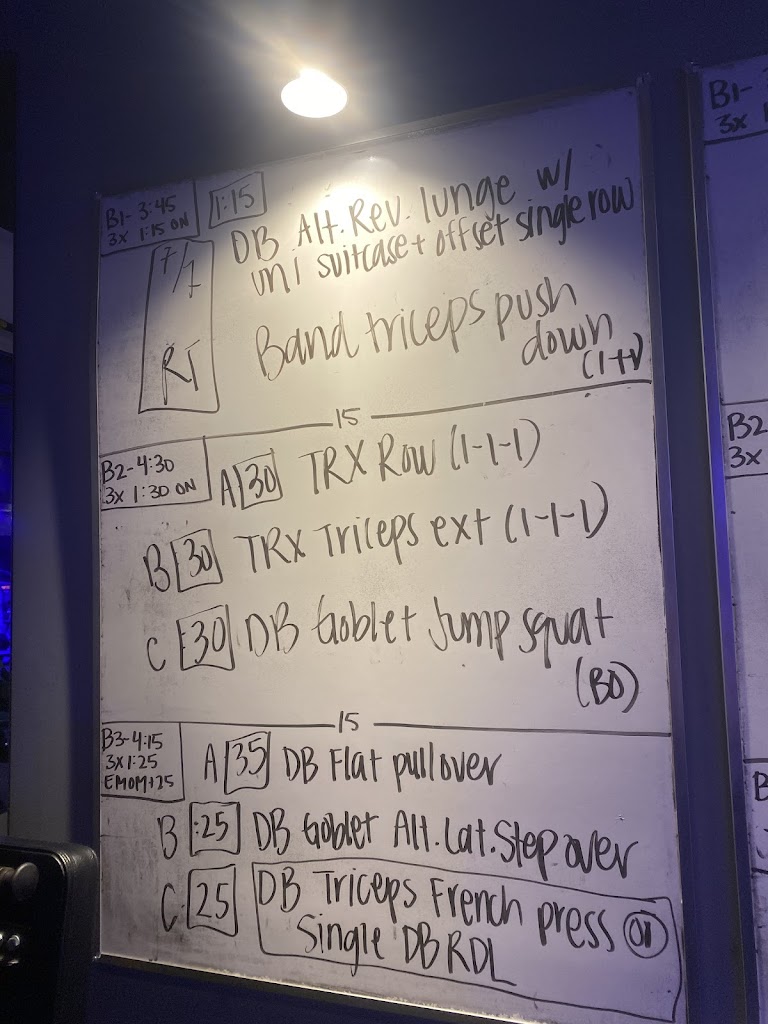 B1- 3:45
3x 1:15 ON
1:15
DB Alt. Rev. lunge w/
uni suitcase + offset single row
7/7
RT
Band triceps push
down
(1+1)
15
B2-4:30
3x 1:30 ON
A :30 TRX Row (1-1-1)
B :30 TRX Triceps ext (1-1-1)
C :30 DB Goblet Jump squat
(BO)
15
B3-4:15
3x1:25
EMOM+25
A :35 DB Flat pullover
B :25 DB Goblet Alt. Lat. Step over
C :25 DB Triceps French press or
Single DB RDL
B1-
3x
B2
3x
B